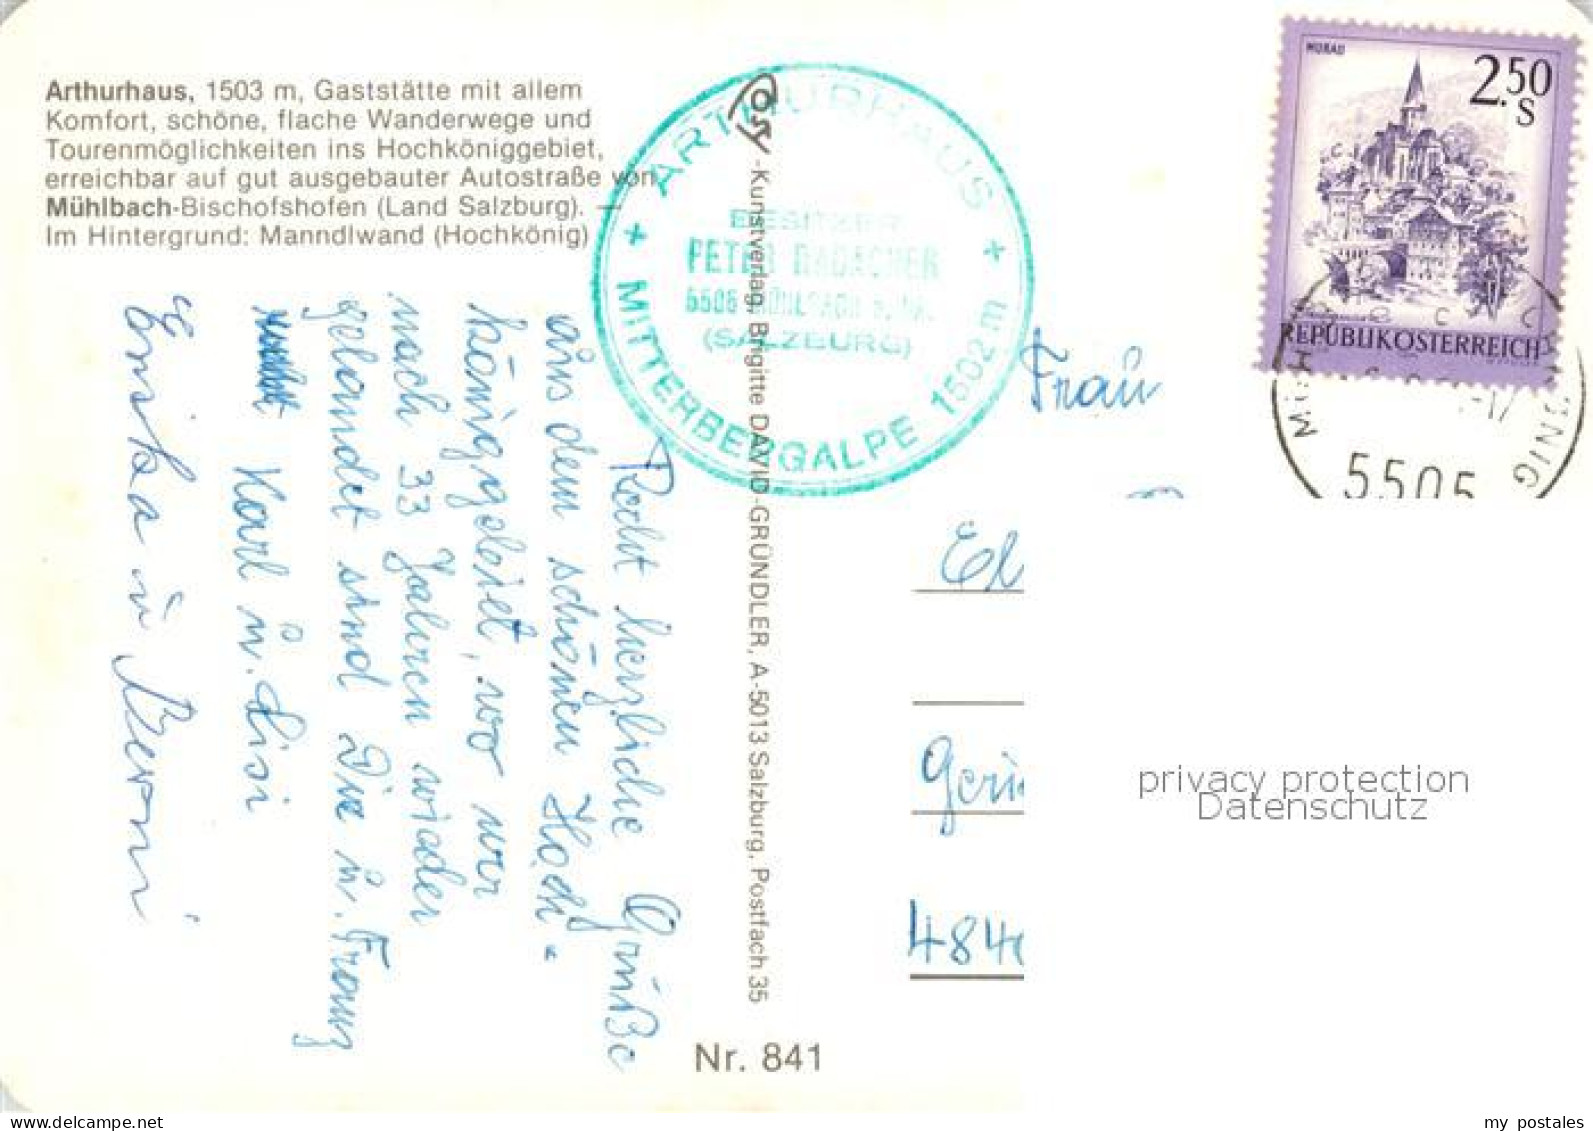 Arthurhaus, 1503 m, Gaststätte mit allem
Komfort, schöne, flache Wanderwege und
Tourenmöglichkeiten ins Hochköniggebiet,
erreichbar auf gut ausgebauter Autostraße von
Mühlbach-Bischofshofen (Land Salzburg). —
Im Hintergrund: Manndlwand (Hochkönig)
ARTHURHAUS
BESITZER
PETER RADACHER
5505 MÜHLBACH
(SALZBURG)
MITTERBERGALPE 1502 m
-Kunstverlag, Brigitte DAVID-GRÜNDLER, A-5013 Salzburg, Postfach 35
Recht herzliche Grüße
aus dem schönen Hoch-
königgebiet, wo wir
nach 33 Jahren wieder
gelandet sind Die u. Franz
Karl u. Lisi
Erika u
Nr. 841
MURAU
2.50
S
REPUBLIK ÖSTERREICH
5505
Frau
El
Geri
484
privacy protection
Datenschutz
my postales